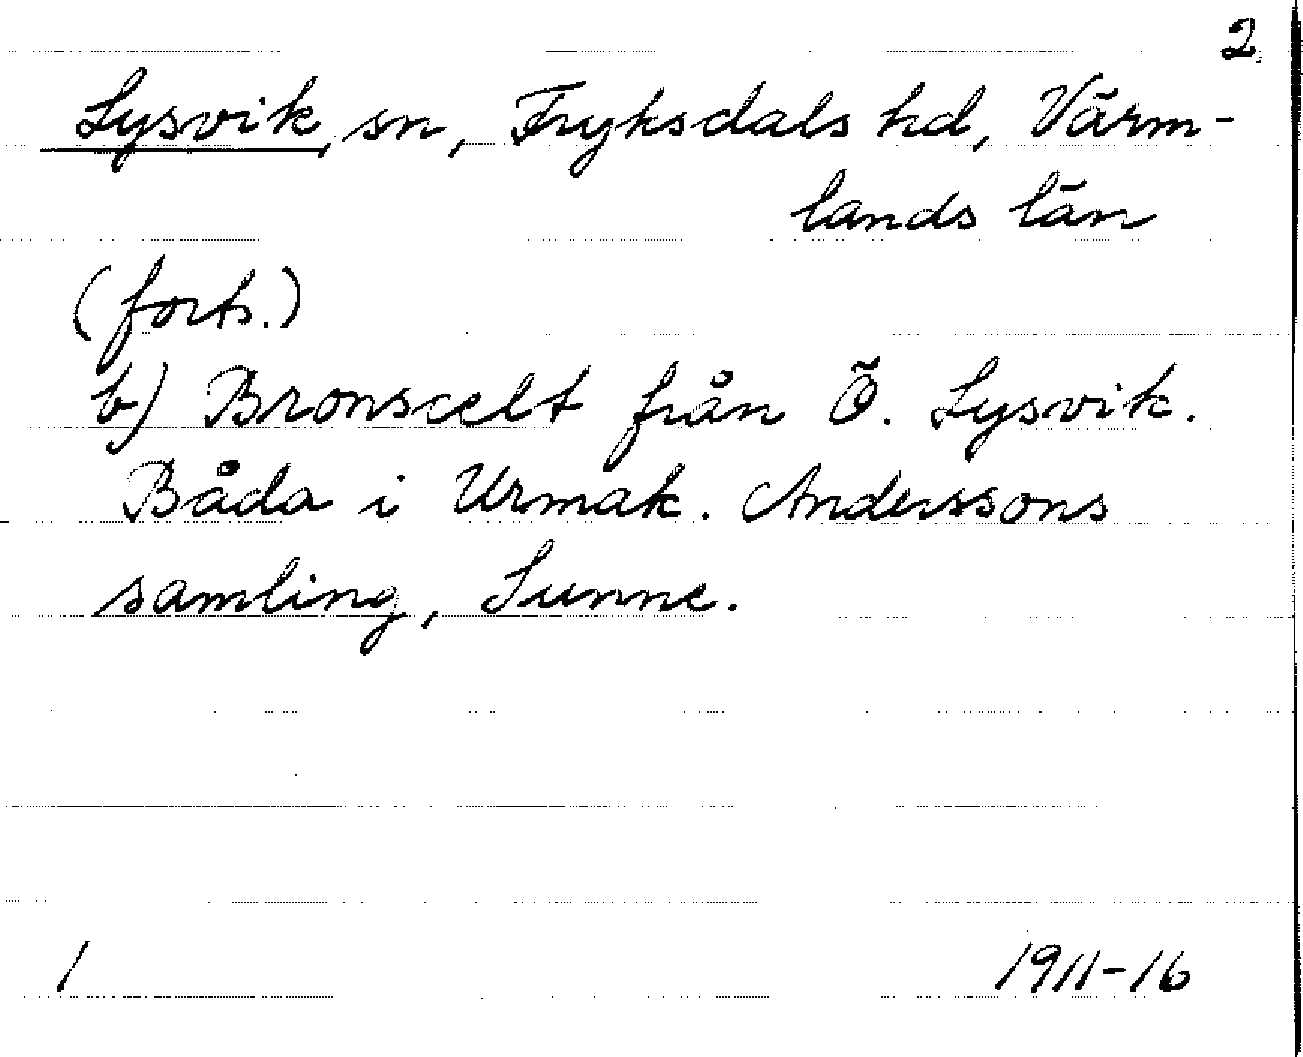 2
Lysvik, sn, Fryksdals hd, Värm-
lands län
(forts.)
b) Bronscelt från Ö. Lysvik.
Båda i Urmak. Anderssons
samling, Sunne.
1
1911-16